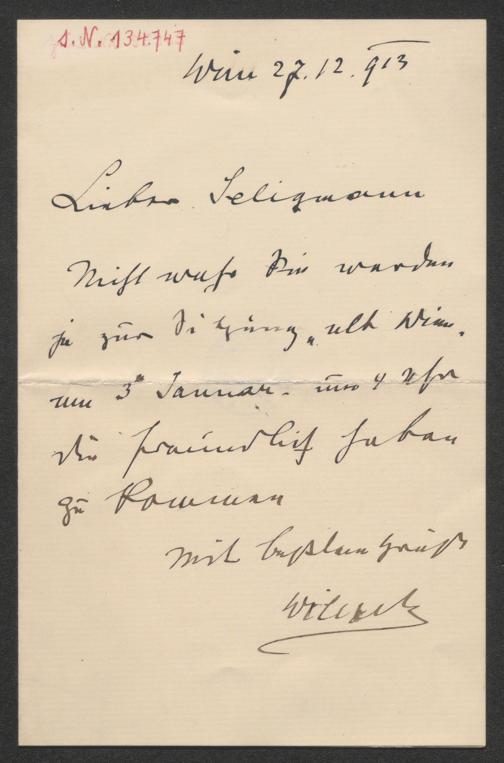 S. N. 134.747
Wien 27.12.913
Lieber Seligmann
Nicht wahr Sie werden
ja zur Sitzung „Alt Wien"
am 3n Januar um 4 Uhr
die Freundlich haben
zu kommen
Mit besten Gruß
Wilczek